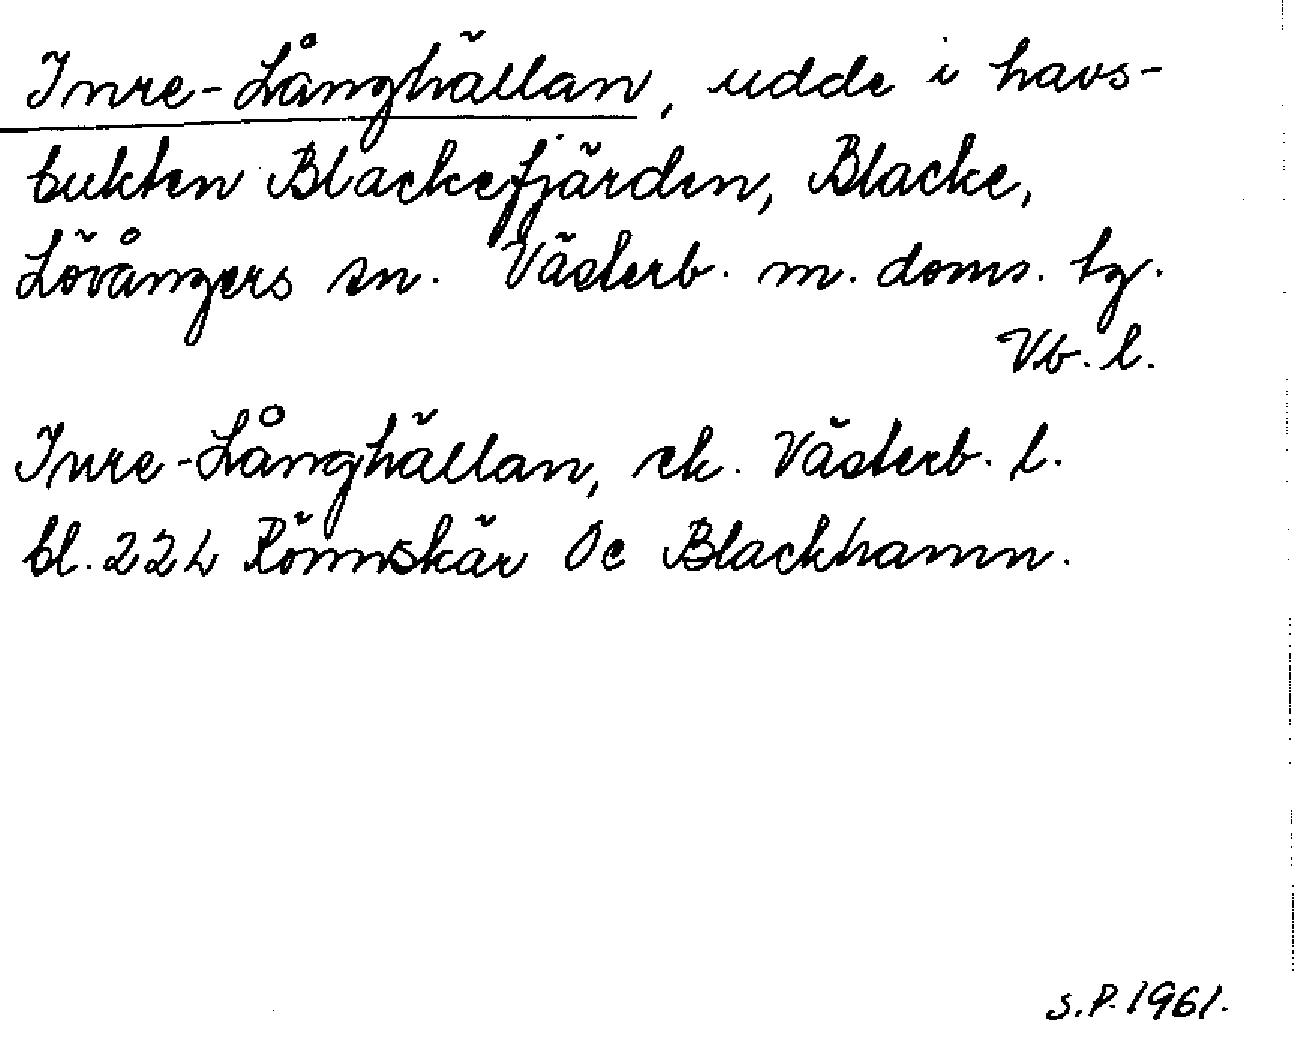 Inre-Långhällan, udde i havs-
bukten Blackefjärden, Blacke,
Lövångers sn. Västerb. m. doms. tg.
Vb. l.
Inre-Långhällan, ek. Västerb. l.
bl. 22L Rönnskär Oc Blackhamn.
S.P. 1961.